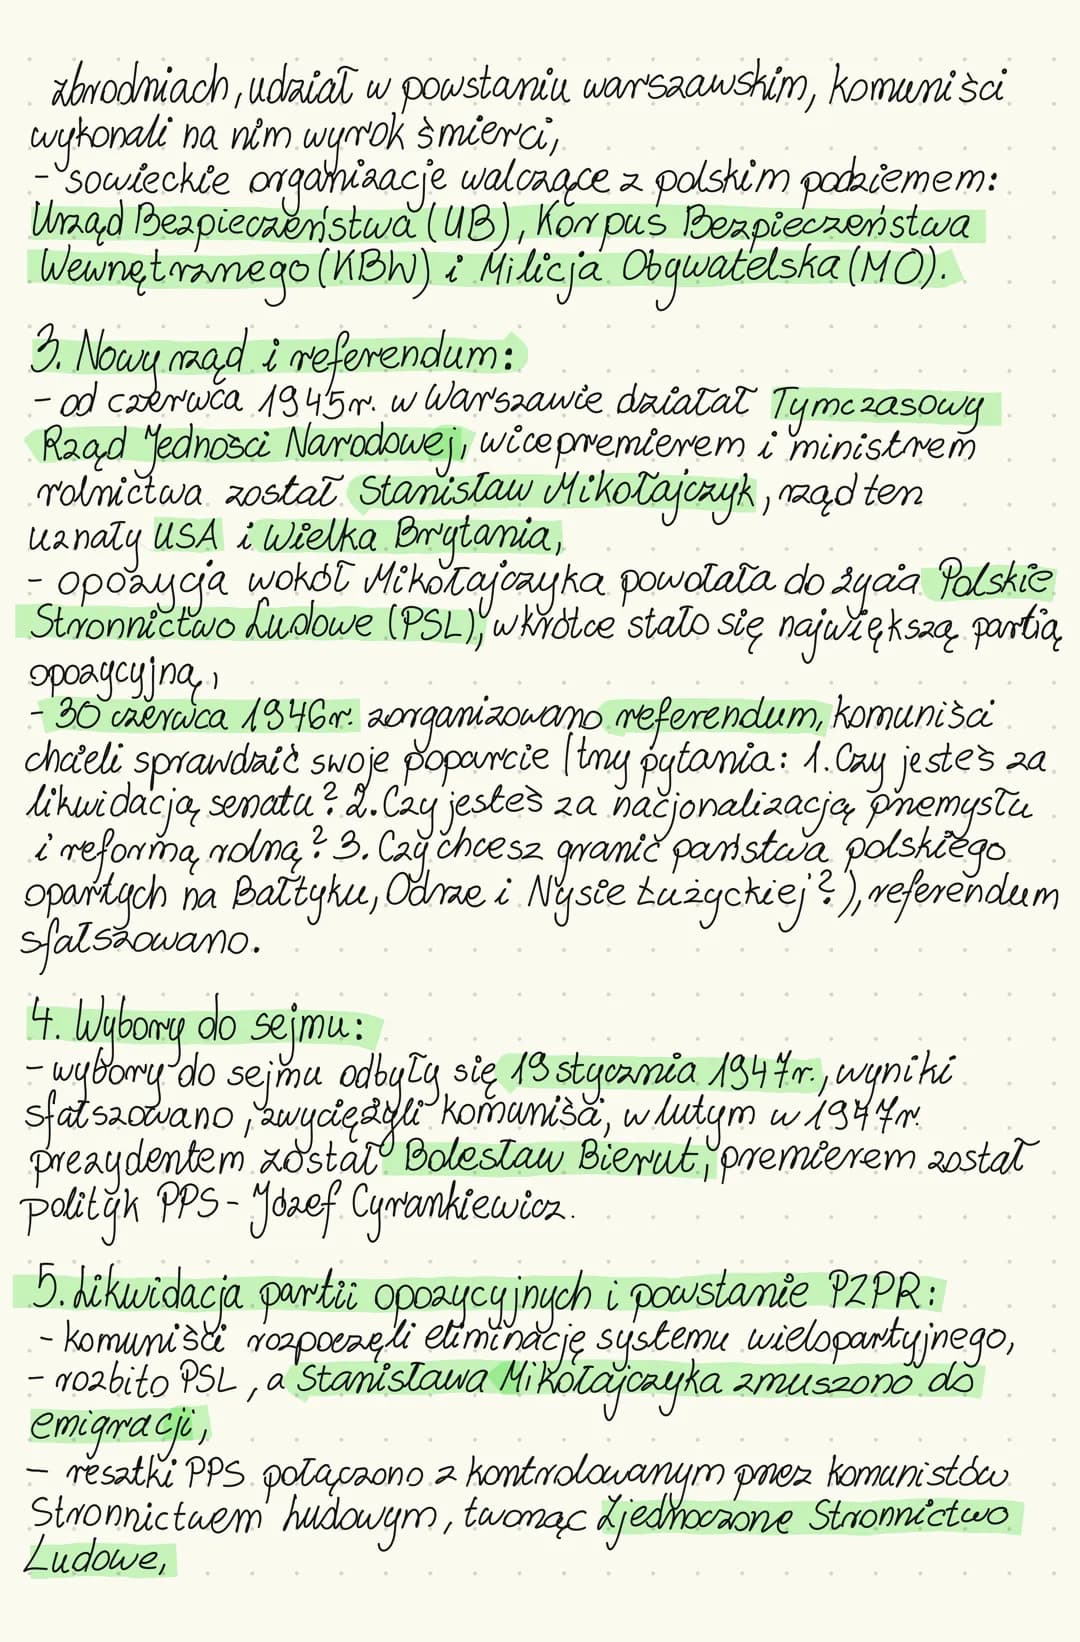 zbrodniach, udział w powstaniu warszawskim, komuniści
wykonali na nim wyrok śmierci,
- sowieckie organizacje walczące z polskim podziemem:
Urząd Bezpieczeństwa (UB), Korpus Bezpieczeństwa
Wewnętrznego (KBW) i Milicja Obywatelska (MO).
3. Nowy rząd i referendum:
- od czerwca 1945r. w Warszawie działał Tymczasowy
Rząd Jedności Narodowej, wicepremierem i ministrem
rolnictwa został Stanisław Mikołajczyk, rząd ten
uznały USA i Wielka Brytania,
- opozycja wokół Mikołajczyka powołała do życia Polskie
Stronnictwo Ludowe (PSL), wkrótce stało się największą partią
opozycyjną,
- 30 czerwca 1946r. zorganizowano referendum, komuniści
chcieli sprawdzić swoje poparcie (trzy pytania: 1. Czy jesteś za
likwidacją senatu? 2. Czy jesteś za nacjonalizacją przemysłu
i reformą rolną? 3. Czy chcesz granic państwa polskiego
opartych na Bałtyku, Odrze i Nysie Łużyckiej?), referendum
sfałszowano.
4. Wybory do sejmu:
- wybory do sejmu odbyły się 19 stycznia 1947r., wyniki
sfałszowano, zwyciężyli komuniści, w lutym w 1947r.
prezydentem został Bolesław Bierut, premierem został
polityk PPS - Józef Cyrankiewicz.
5. Likwidacja partii opozycyjnych i powstanie PZPR:
- komuniści rozpoczęli eliminację systemu wielopartyjnego,
- rozbito PSL, a Stanisława Mikołajczyka zmuszono do
emigracji,
- resztki PPS połączono z kontrolowanym przez komunistów
Stronnictwem Ludowym, tworząc Zjednoczone Stronnictwo
Ludowe,